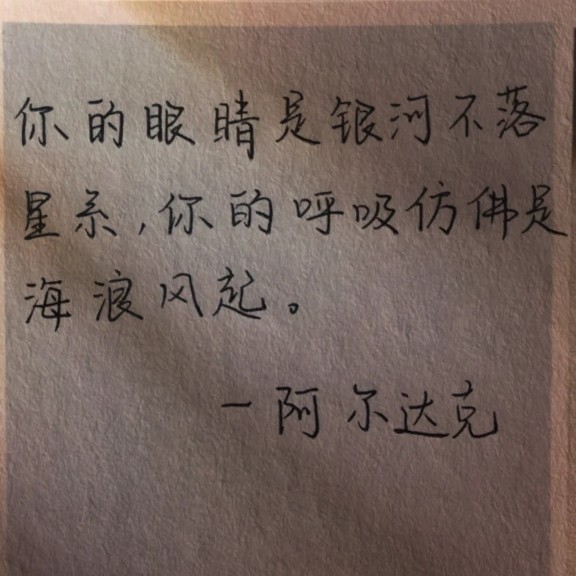 你的眼睛是银河不落
星系,你的呼吸仿佛是
海浪风起。
—阿尔达克